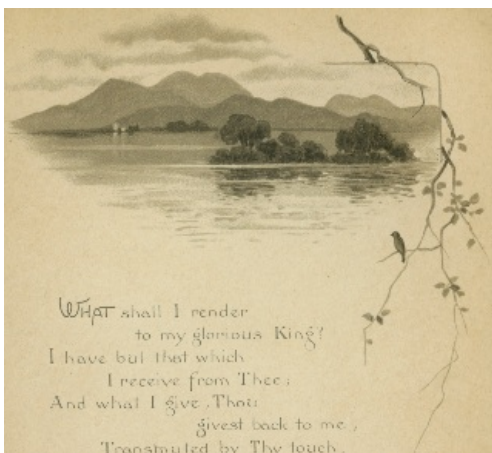 WHAT shall I render
to my glorious King?
I have but that which
I receive from Thee;
And what I give, Thou
givest back to me,
Transmuted by Thy touch.